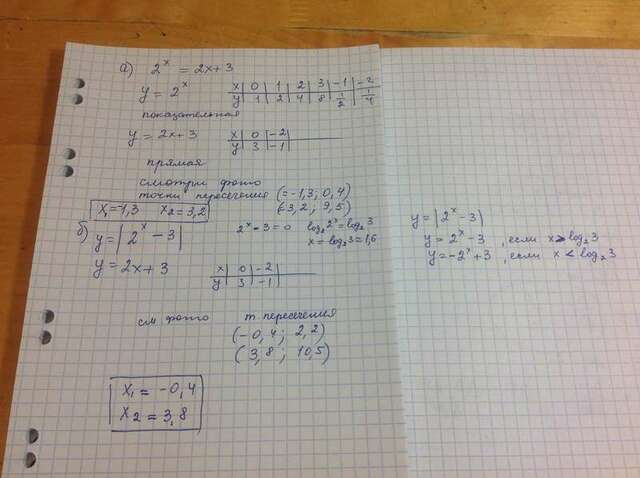 а) 2ˣ = 2x + 3
y = 2ˣ
x | 0 | 1 | 2 | 3 | -1 | -2
y | 1 | 2 | 4 | 8 | 1/2 | 1/4
показательная
y = 2x + 3
x | 0 | -2
y | 3 | -1
прямая
смотри фото
точки пересечения (=-1,3; 0,4)
(-3,2; 9,5)
x₁=-1,3 x₂=3,2
б) y = |2ˣ - 3|
2ˣ - 3 = 0 log₂2ˣ = log₂3
x = log₂3 = 1,6
y = 2x + 3
x | 0 | -2
y | 3 | -1
см фото т. пересечения
(-0,4; 2,2)
(3,8; 10,5)
x₁ = -0,4
x₂ = 3,8
y = |2ˣ - 3|
y = 2ˣ - 3, если x ≥ log₂3
y = -2ˣ + 3, если x < log₂3